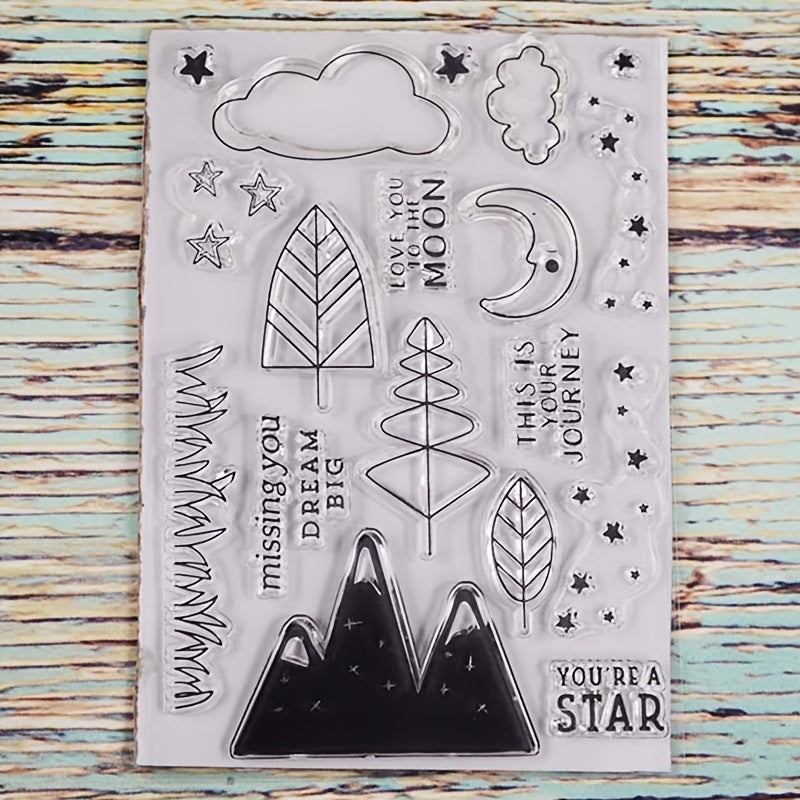 LOVE YOU
TO THE
MOON
THIS IS
YOUR
JOURNEY
missing you
DREAM
BIG
YOU'RE A
STAR